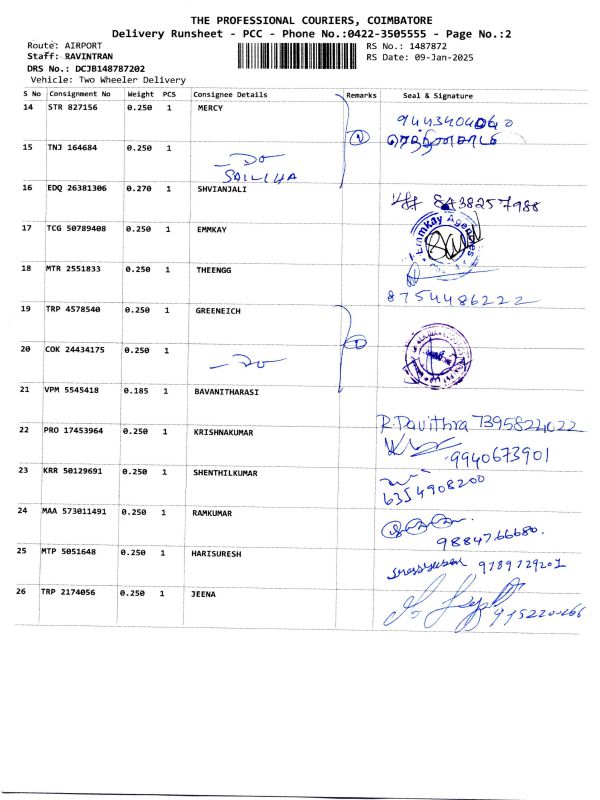 THE PROFESSIONAL COURIERS, COIMBATORE
Delivery Runsheet - PCC - Phone No.:0422-3505555 - Page No.:2
Route: AIRPORT RS No.: 1487872
Staff: RAVINTRAN RS Date: 09-Jan-2025
DRS No.: DCJB148787202
Vehicle: Two Wheeler Delivery
S No Consignment No Weight PCS Consignee Details Remarks Seal & Signature
14 STR 827156 0.250 1 MERCY
15 TNJ 164684 0.250 1 -Do
SAILIHA
16 EDQ 26381306 0.270 1 SHVIANJALI
17 TCG 50789408 0.250 1 EMMKAY Emmkay Agencies
18 MTR 2551833 0.250 1 THEENGG 8754486222
19 TRP 4578540 0.250 1 GREENEICH
20 COK 24434175 0.250 1 -Do
21 VPM 5545418 0.185 1 BAVANITHARASI R. Pavithra
22 PRO 17453964 0.250 1 KRISHNAKUMAR 9940673901
23 KRR 50129691 0.250 1 SHENTHILKUMAR 6354908200
24 MAA 573011491 0.250 1 RAMKUMAR 9884766680.
25 MTP 5051648 0.250 1 HARISURESH 9789729201
26 TRP 2174056 0.250 1 JEENA